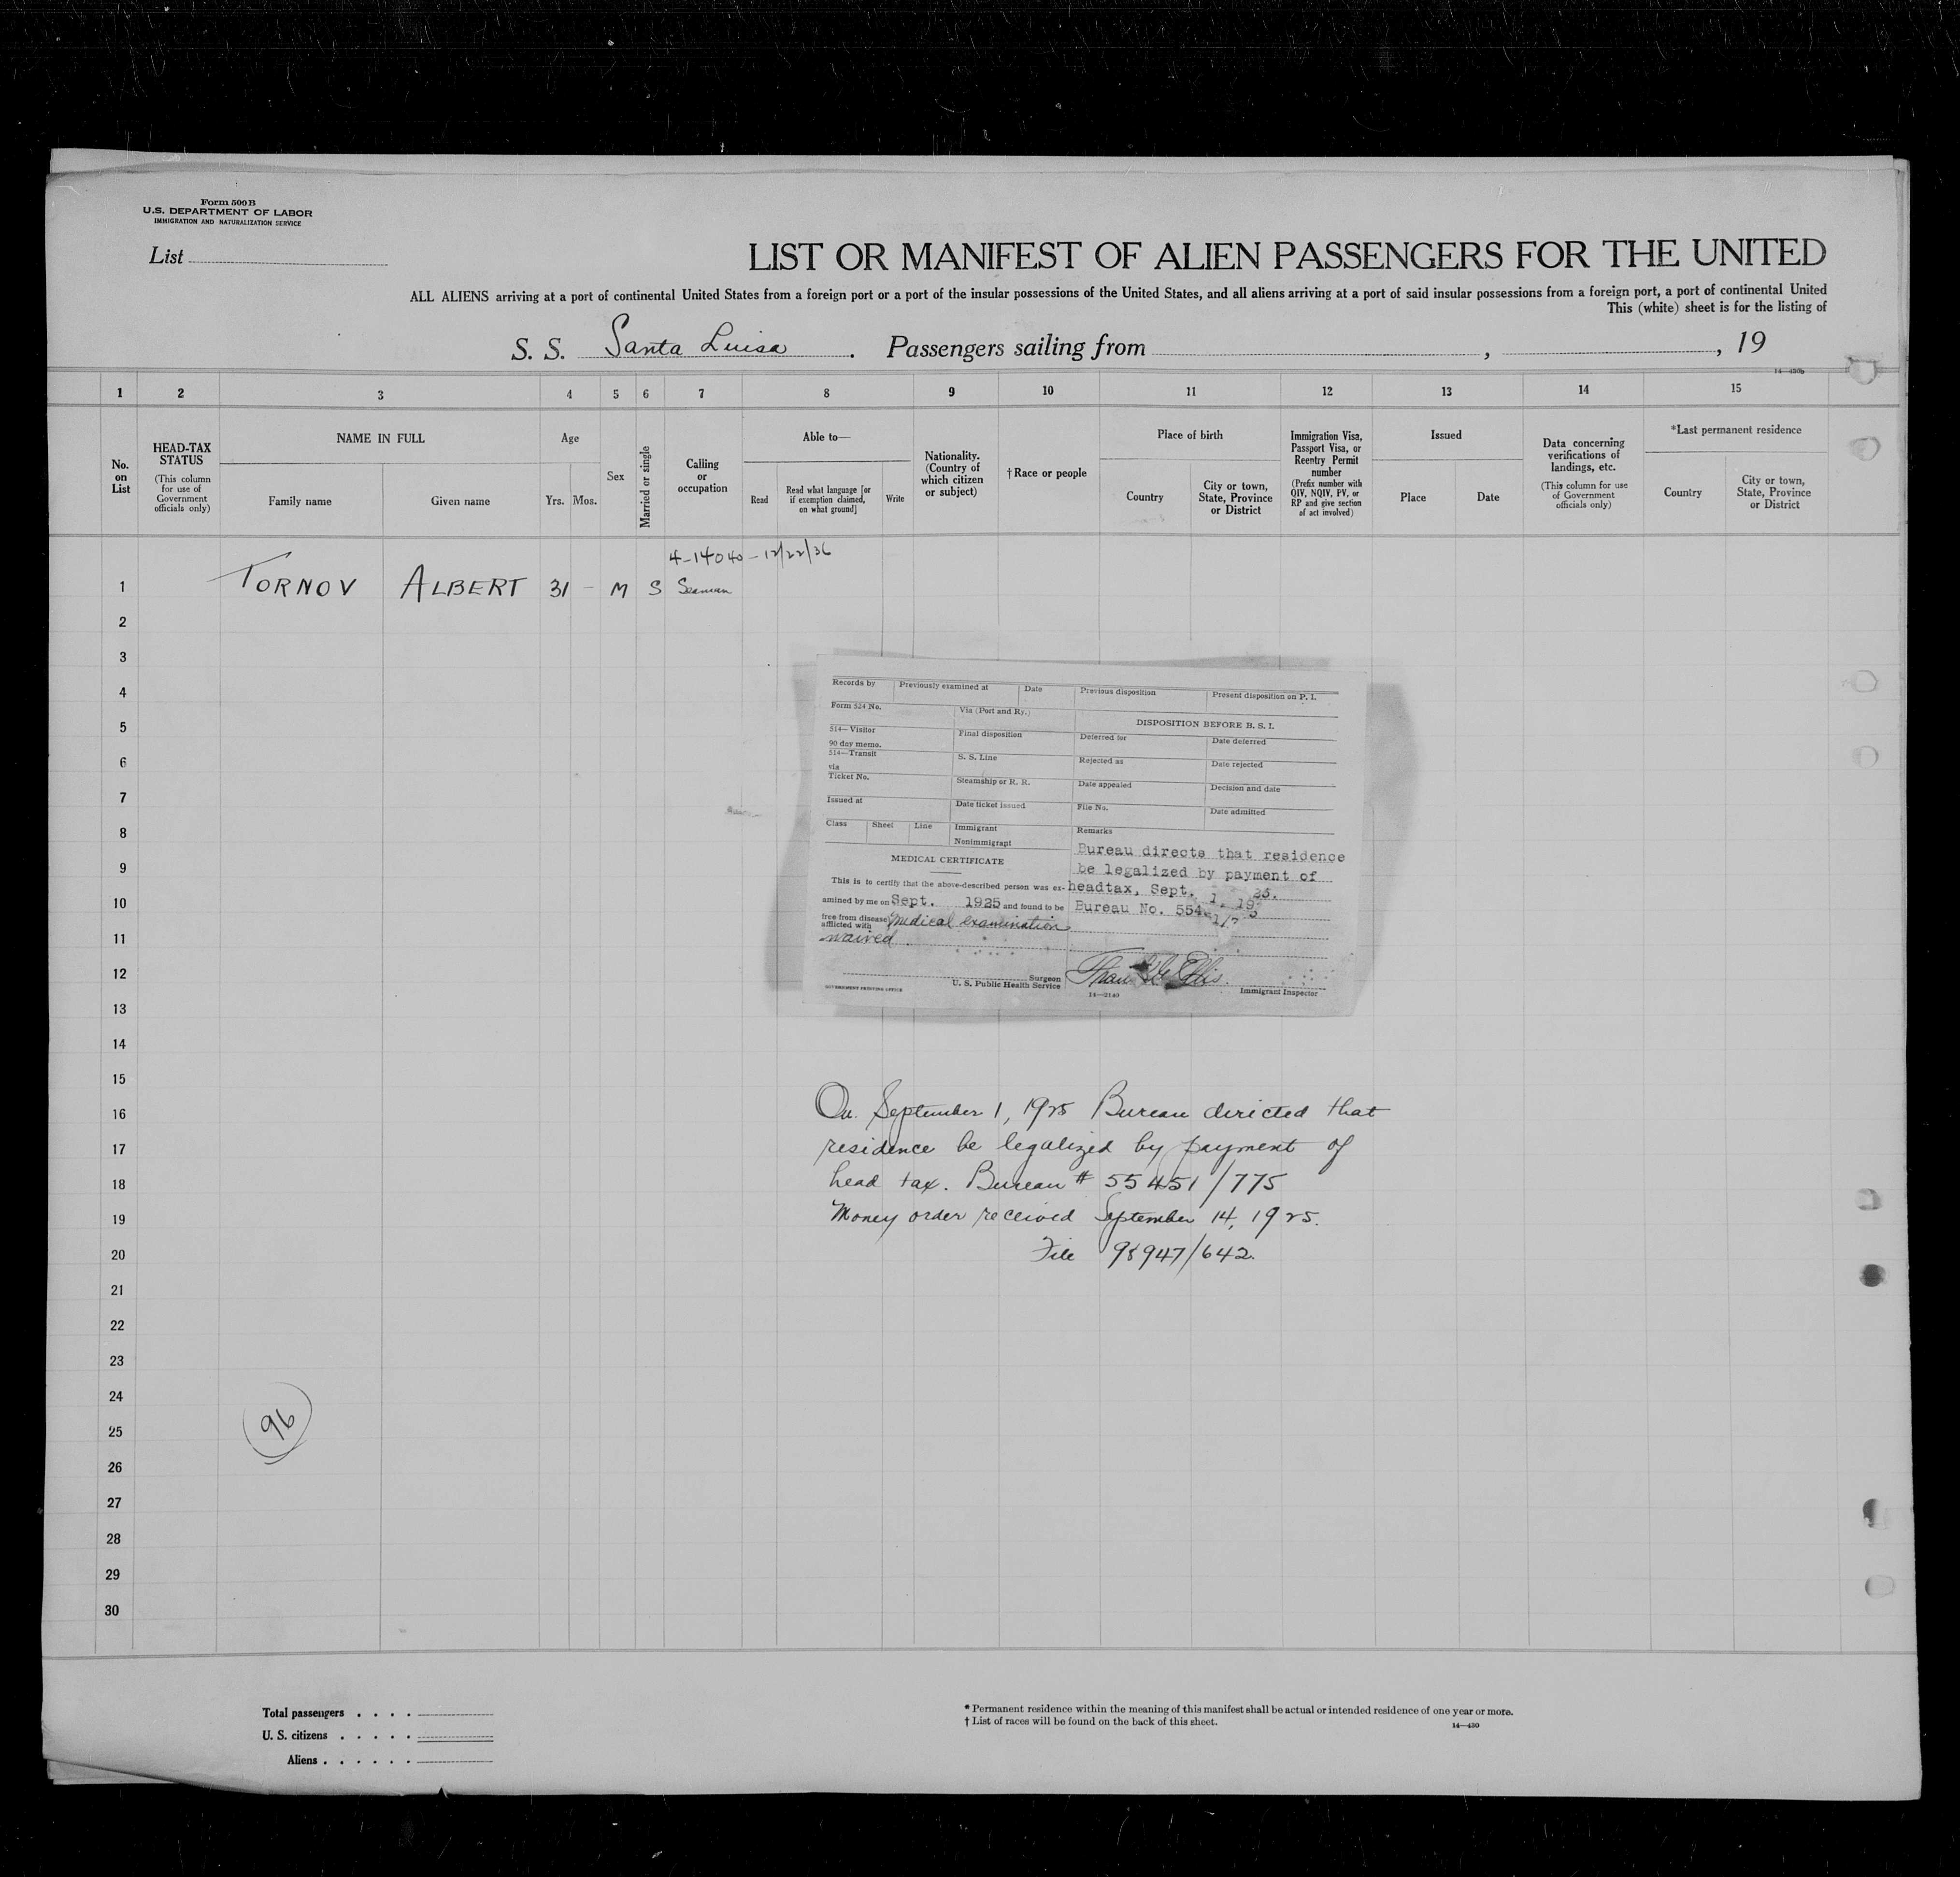 Form 500B
U.S. DEPARTMENT OF LABOR
IMMIGRATION AND NATURALIZATION SERVICE
List
LIST OR MANIFEST OF ALIEN PASSENGERS FOR THE UNITED
ALL ALIENS arriving at a port of continental United States from a foreign port or a port of the insular possessions of the United States, and all aliens arriving at a port of said insular possessions from a foreign port, a port of continental United
This (white) sheet is for the listing of
S. S. Santa Luisa. Passengers sailing from , , 19
14—430b
1 2 3 4 5 6 7 8 9 10 11 12 13 14 15
No. on List
HEAD-TAX STATUS
(This column for use of Government officials only)
NAME IN FULL
Family name Given name
Age
Yrs. Mos.
Sex
Married or single
Calling or occupation
Able to—
Read
Read what language [or if exemption claimed, on what ground]
Write
Nationality. (Country of which citizen or subject)
†Race or people
Place of birth
Country
City or town, State, Province or District
Immigration Visa, Passport Visa, or Reentry Permit number
(Prefix number with QIV, NQIV, PV, or RP and give section of act involved)
Issued
Place Date
Data concerning verifications of landings, etc.
(This column for use of Government officials only)
*Last permanent residence
Country
City or town, State, Province or District
4-14040-12/22/36
1 TORNOV ALBERT 31 - M S Seaman
2
3
4
5
6
7
8
9
10
11
12
13
14
15
16
17
18
19
20
21
22
23
24
25
26
27
28
29
30
Records by Previously examined at Date Previous disposition Present disposition on P. I.
Form 524 No. Via (Port and Ry.)
DISPOSITION BEFORE B. S. I.
514—Visitor Final disposition Deferred for Date deferred
90 day memo.
514—Transit S. S. Line Rejected as Date rejected
via
Ticket No. Steamship or R. R. Date appealed Decision and date
Issued at Date ticket issued File No. Date admitted
Class Sheet Line Immigrant Remarks
Nonimmigrant
MEDICAL CERTIFICATE
This is to certify that the above-described person was ex-
amined by me on Sept. 1925 and found to be
free from disease
afflicted with Medical examination
waived.
Surgeon
U. S. Public Health Service
GOVERNMENT PRINTING OFFICE
Bureau directs that residence
be legalized by payment of
headtax, Sept. 1, 19
Bureau No. 554
Immigrant Inspector
14—2140
On September 1, 1925 Bureau directed that
residence be legalized by payment of
head tax. Bureau # 55451/775
Money order received September 14, 1925.
File 98947/642.
96
Total passengers . . . .
U. S. citizens . . . . .
Aliens . . . . . .
* Permanent residence within the meaning of this manifest shall be actual or intended residence of one year or more.
† List of races will be found on the back of this sheet.
14—430